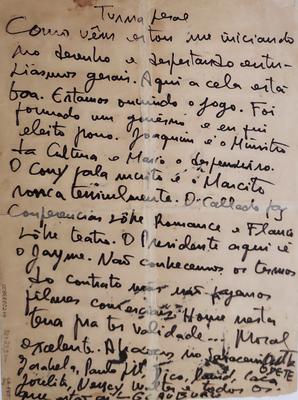 Turma geral
Como vêm estou me iniciando
no desenho e despertando entu-
siasmos gerais. Aqui a cela está
boa. Estamos ouvindo o jogo. Foi
formado um governo e eu fui
eleito povo. Joaquim é o Ministro
da Cultura e Mario o despenseiro.
O Cony fala muito é o Marcito
ronca terrivelmente. O Callado faz
Conferencias sôbre Romance e Flavio
sôbre teatro. O Presidente aqui é
o Jayme. Não conhecemos os termos
do contrato mas não façamos
filmes comerciais. Hoje nesta
terra pra ter validade... Moral
excelente. Abraços
Isabela, Paulo
Joelita,
todos os
que
GLAUBER